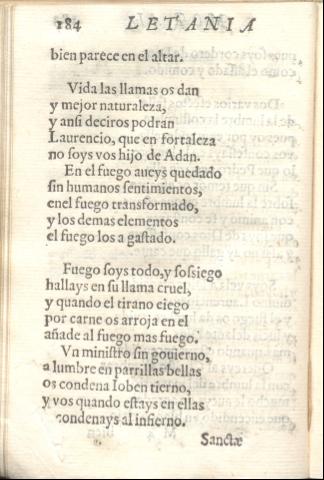 184 LETANIA
bien parece en el altar.
Vida las llamas os dan
y mejor naturaleza,
y ansi deciros podran
Laurencio, que en fortaleza
no soys vos hijo de Adan.
En el fuego aueys quedado
sin humanos sentimientos,
enel fuego transformado,
y los demas elementos
el fuego los a gastado.
Fuego soys todo, y sossiego
hallays en su llama cruel,
y quando el tirano ciego
por carne os arroja en el
añade al fuego mas fuego.
Vn ministro sin gouierno,
a lumbre en parrillas bellas
os condena Ioben tierno,
y vos quando estays en ellas
condenays al infierno.
Sanctæ